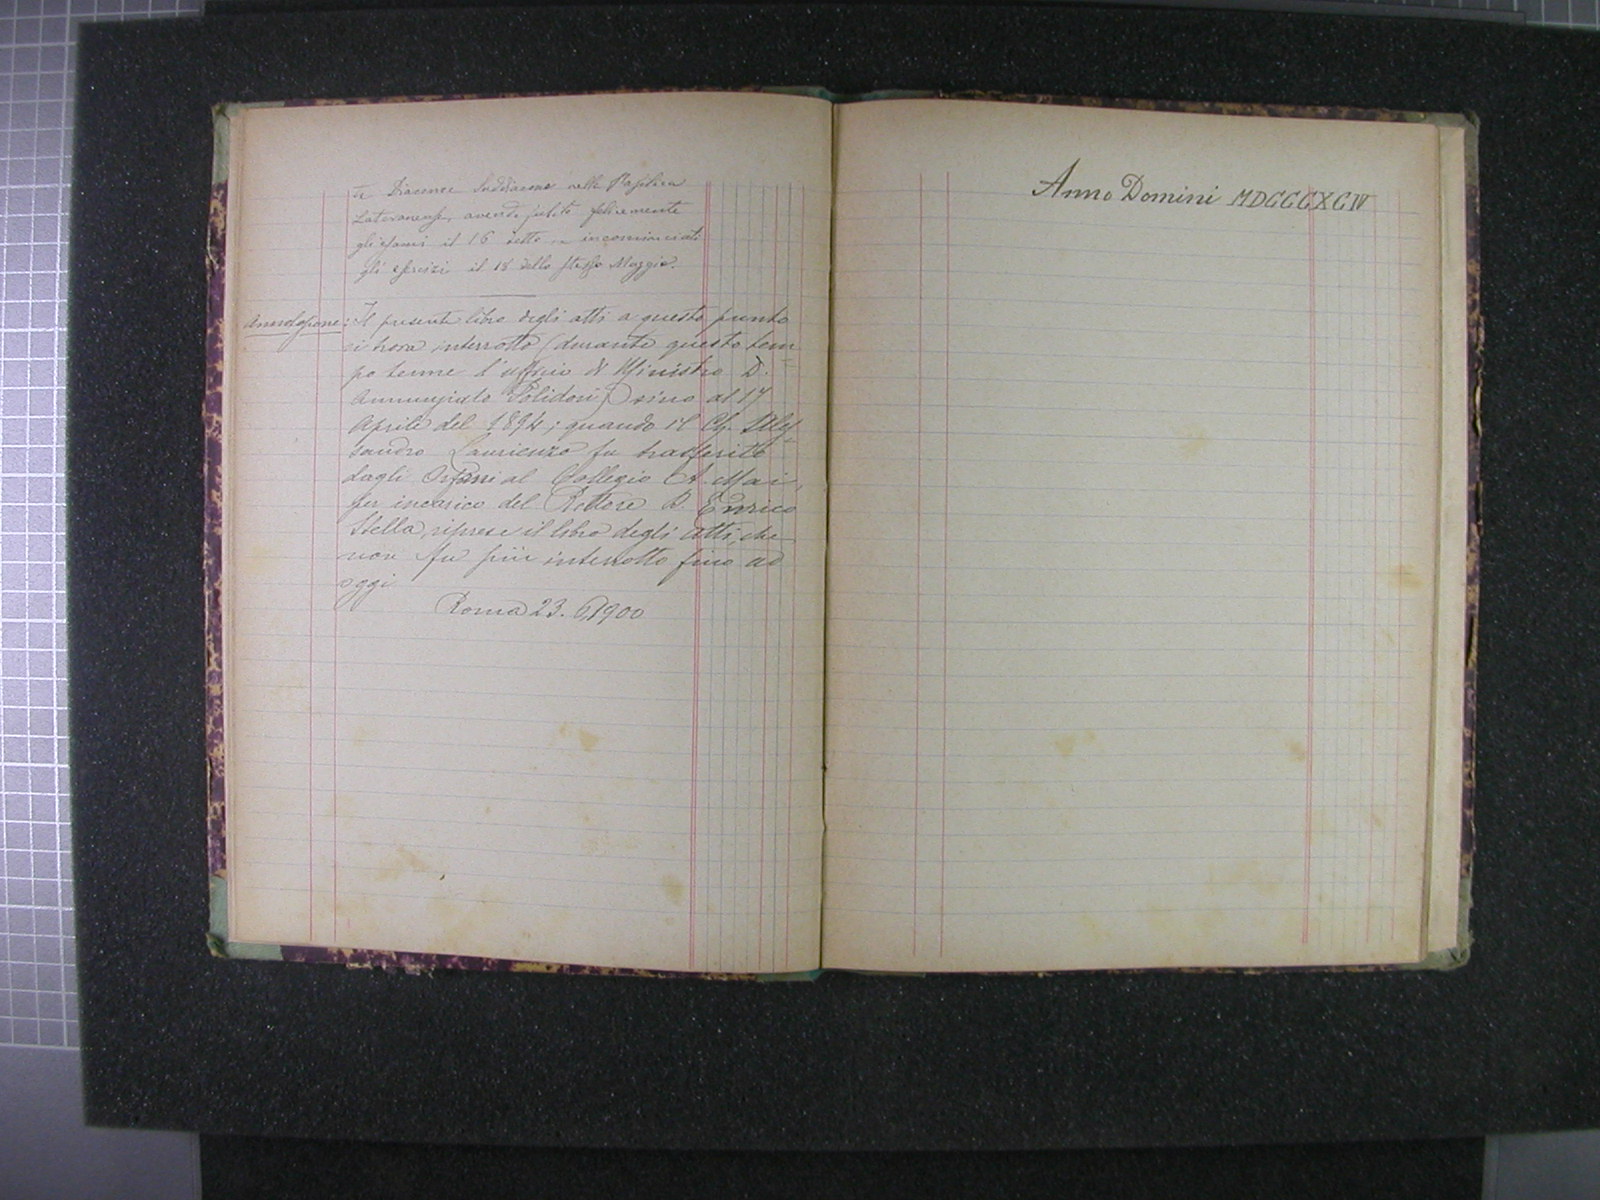 te Piacenza Suddiacono nella Basilica
Lateranense, avendo subito felicemente
gli esami il 16 detto e incominciati
gli esercizi il 18 dello stesso Maggio.
Annotazione: Il presente libro degli atti a questo punto
si trova interrotto (durante questo tem
po tenne l'ufficio di Ministro D.
Annunziato Polidori) sino al 17
Aprile del 1894; quando il Ch. Ales
sandro Laurienzo fu trasferito
dagli Orfani al Collegio A. Mai,
per incarico del Rettore D. Enrico
Stella, riprese il libro degli atti, che
non fu più interrotto fino ad
oggi
Roma 23. 6. 1900
Anno Domini MDCCCXCIV